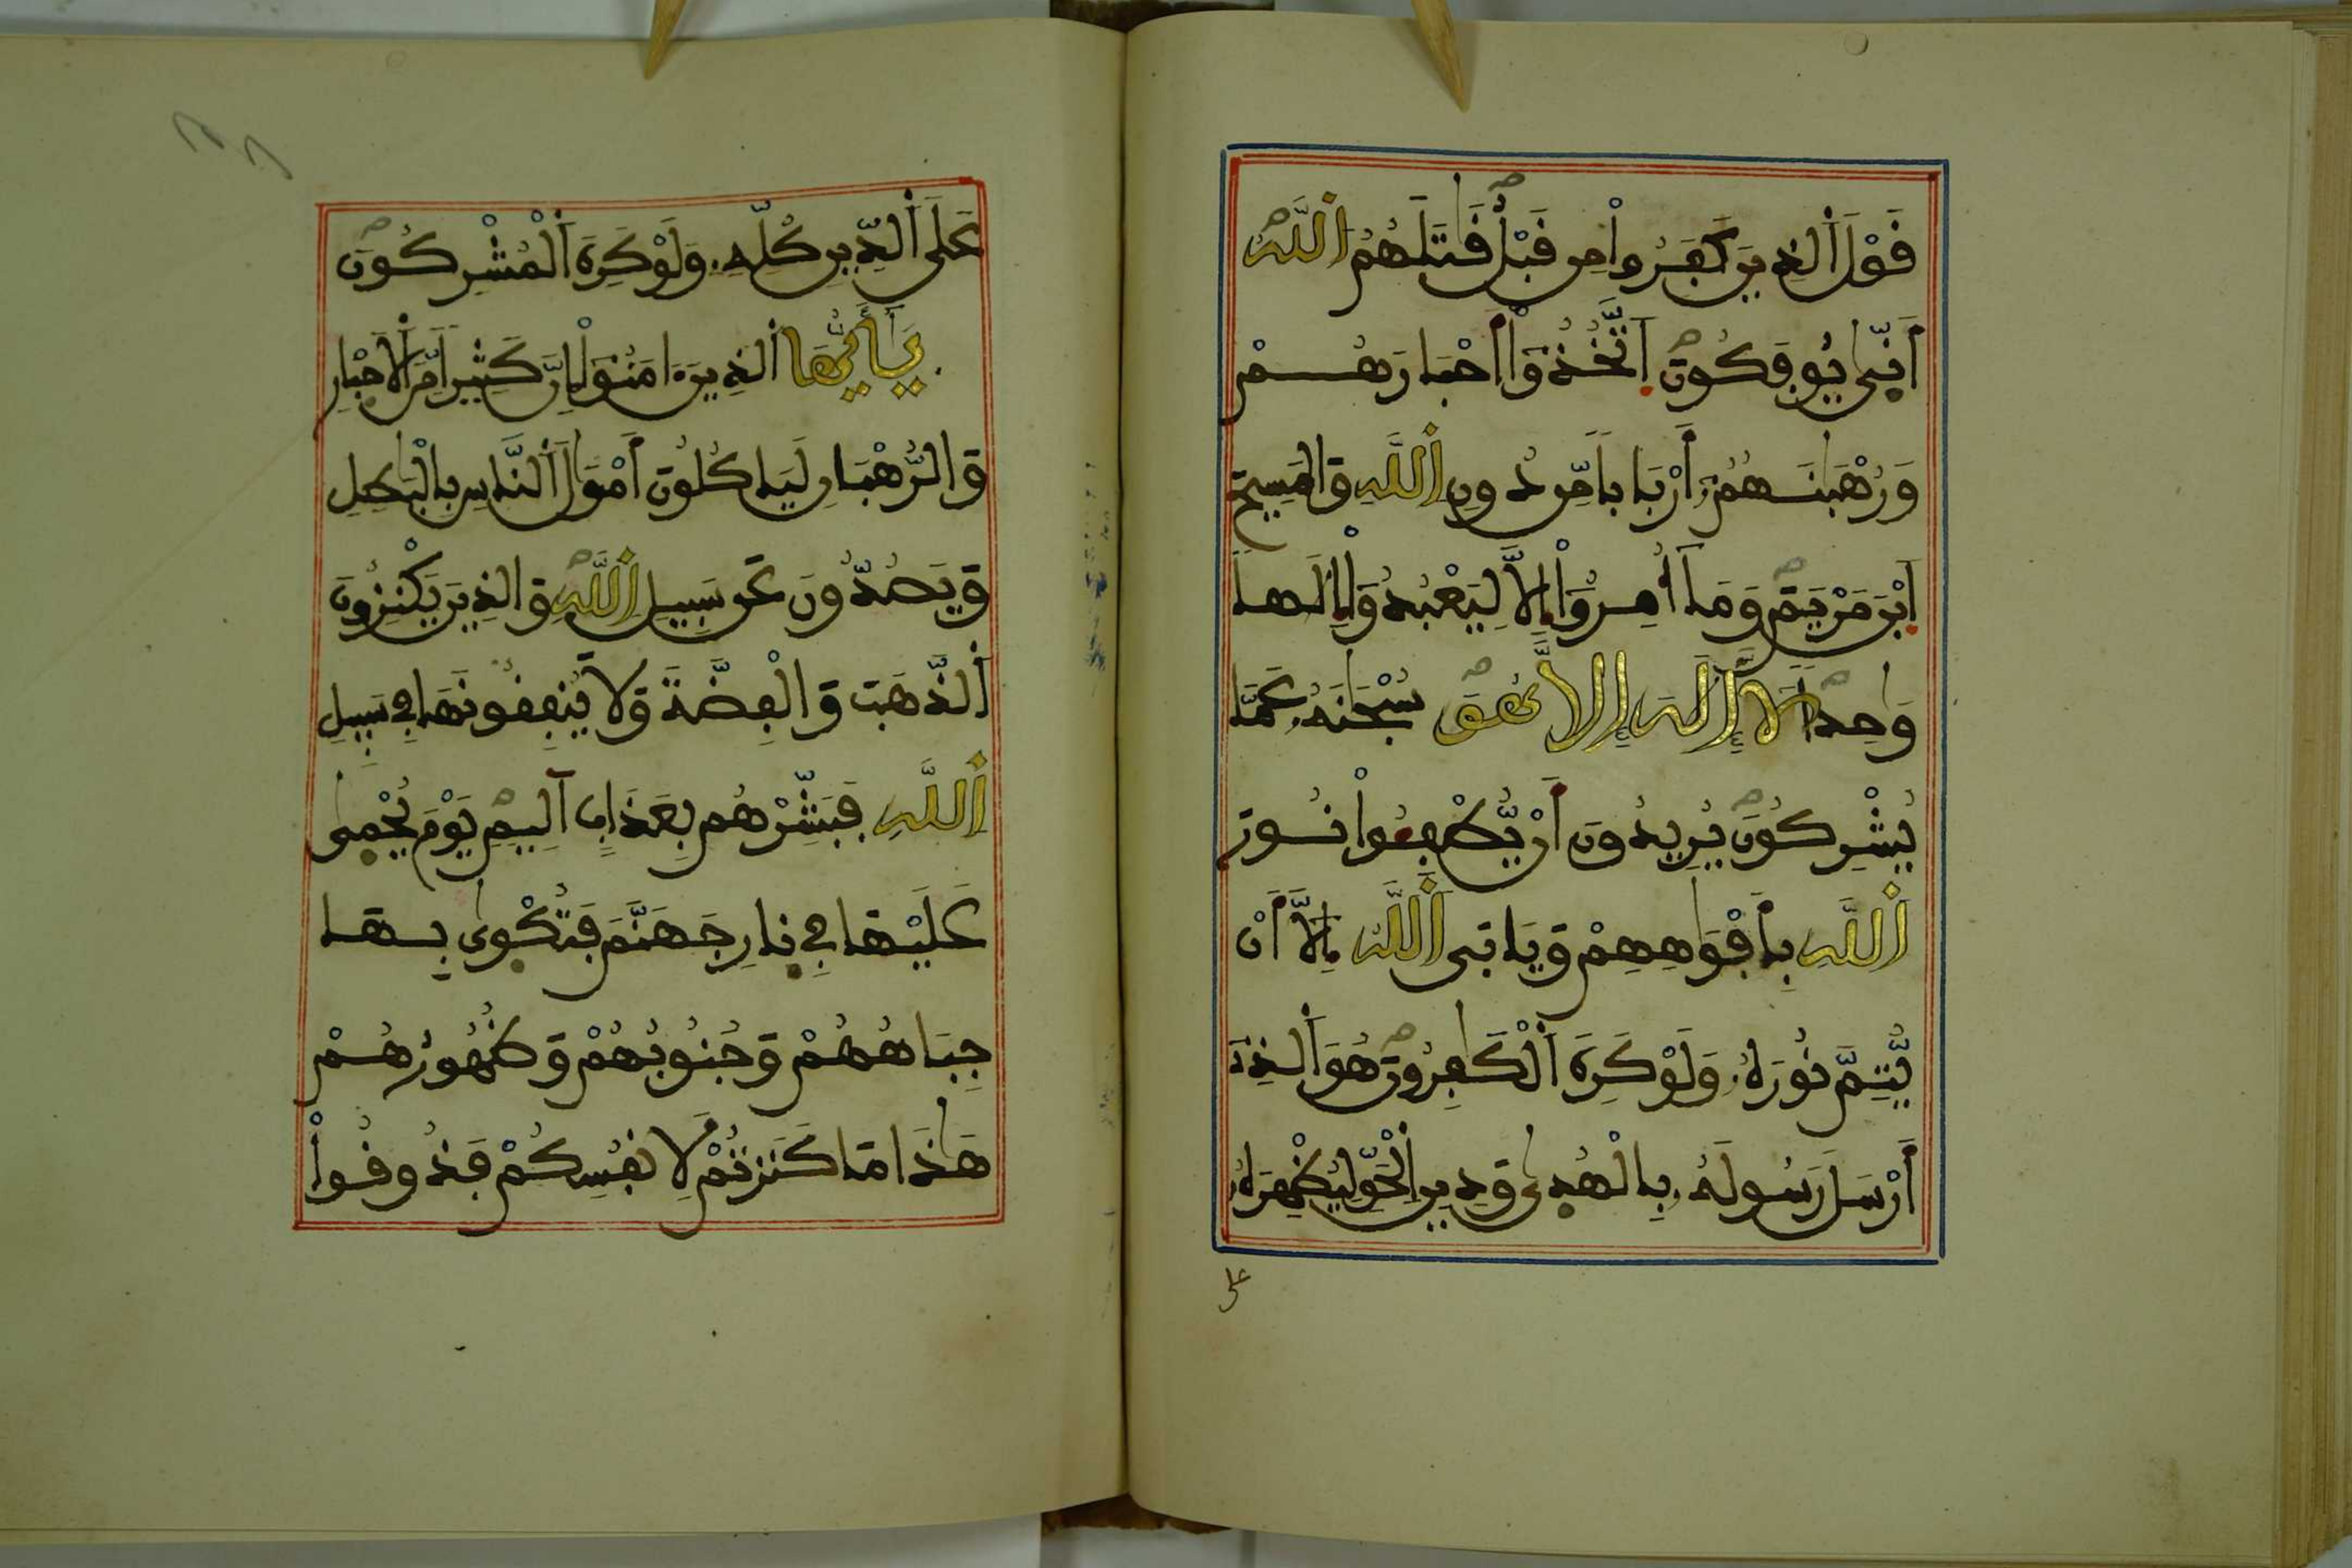 قَوْلَ ٱلذِينَ كَفَرُوا۟ مِن قَبْلُ قَٰتَلَهُمُ ٱللَّهُ
أَنّ۪يٰ يُوفَكُونَ ٱتَّخَذُوٓا۟ أَحْبَارَهُمْ
وَرُهْبَٰنَهُمُۥٓ أَرْبَاباً مِّن دُونِ ٱللَّهِ وَالمَسِيحَ
ٱبْنَ مَرْيَمَ وَمَآ أُمِرُوٓا۟ إِلَّا لِيَعْبُدُوٓا۟ إِلَٰهاً
وَٰحِداً لَّآ إِلَٰهَ إِلَّا هُوَ سُبْحَٰنَهُۥ عَمَّا
يُشْرِكُونَ يُرِيدُونَ أَنْ يُّطْفِـُٔوا۟ نُورَ
ٱللَّهِ بِأَفْوَٰهِهِمْ وَيَابَى ٱللَّهُ إِلَّآ أَنْ
يُّتِمَّ نُورَهُۥ وَلَوْ كَرِهَ ٱلْكَٰفِرُونَ هُوَ ٱلذِےٓ
أَرْسَلَ رَسُولَهُۥ بِالْهُد۪يٰ وَدِينِ ٱلْحَقِّ لِيُظْهِرَهُۥ
على
عَلَى ٱلدِّينِ كُلِّهِۦ وَلَوْ كَرِهَ ٱلْمُشْرِكُونَ
يَٰٓأَيُّهَا ٱلذِينَ ءَامَنُوٓا۟ إِنَّ كَثِيراً مِّنَ ٱلَاحْبِارِ
وَالرُّهْبَانِ لَيَاكُلُونَ أَمْوَٰلَ ٱلنَّاسِ بِالْبَٰطِلِ
وَيَصُدُّونَ عَن سَبِيلِ ٱللَّهِ وَالذِينَ يَكْنِزُونَ
ٱلذَّهَبَ وَالْفِضَّةَ وَلَا يُنفِقُونَهَا فِي سَبِيلِ
ٱللَّهِ فَبَشِّرْهُم بِعَذَابٍ اَلِيمٍ يَوْمَ يُحْم۪يٰ
عَلَيْهَا فِي نِارِ جَهَنَّمَ فَتُكْو۪يٰ بِهَا
جِبَاهُهُمْ وَجُنُوبُهُمْ وَظُهُورُهُمْ
هَٰذَا مَا كَنَزْتُمْ لِأَنفُسِكُمْ فَذُوقُوا۟